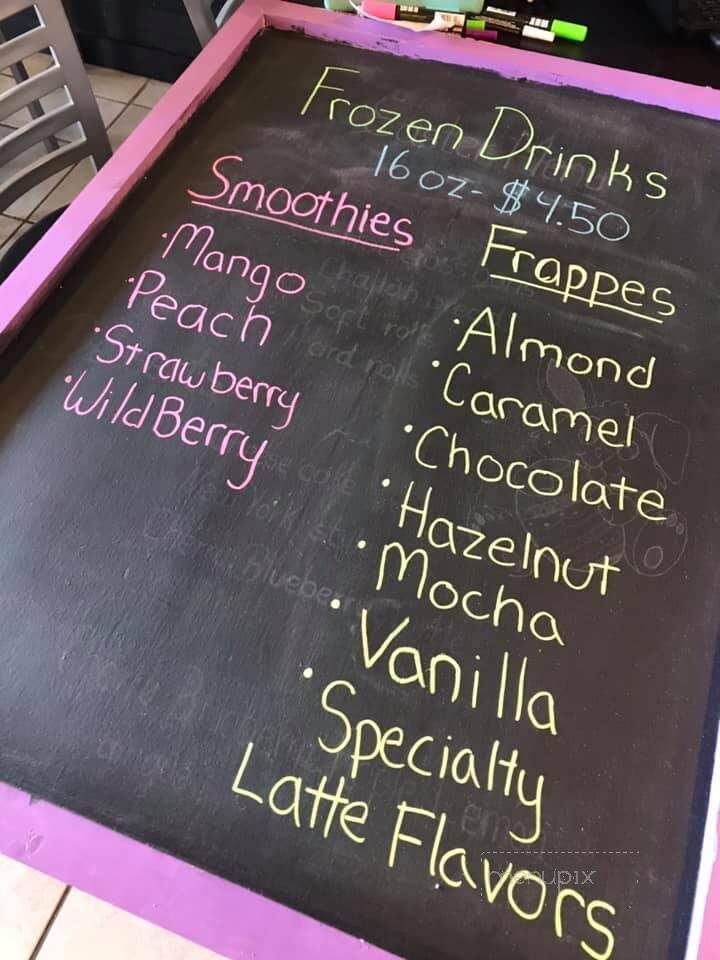 Frozen Drinks
16 oz- $4.50
Smoothies
· Mango
· Peach
· Strawberry
· WildBerry
Frappes
· Almond
· Caramel
· Chocolate
· Hazelnut
· Mocha
· Vanilla
· Specialty
Latte Flavors
Challah bread
Soft rolls
Hard rolls
menupix